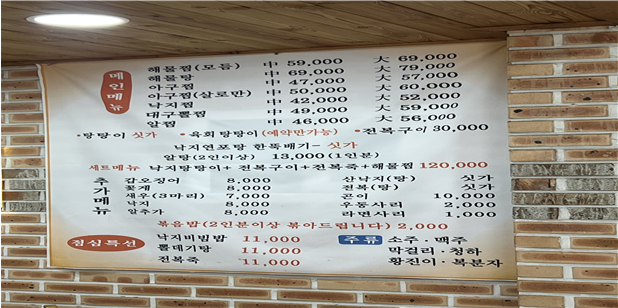 메인메뉴
해물찜(모듬) 中 59,000 大 69,000
해물탕 中 69,000 大 79,000
아구찜 中 47,000 大 57,000
아구찜(살로만) 中 50,000 大 60,000
낙지찜 中 42,000 大 52,000
대구뽈찜 中 49,000 大 59,000
알찜 中 46,000 大 56,000
•탕탕이 싯가 •육회탕탕이(예약만가능) •전복구이 30,000
낙지연포탕 한뚝배기- 싯가
알탕(2인이상) 13,000(1인분)
세트메뉴 낙지탕탕이+전복구이+전복죽+해물찜 120,000
추가메뉴
갑오징어 8,000 산낙지(탕) 싯가
꽃게 8,000 전복(탕) 싯가
새우(3마리) 7,000 곤이 10,000
낙지 8,000 우동사리 2,000
알추가 8,000 라면사리 1,000
볶음밥(2인분이상 볶아드립니다) 2,000
점심특선
낙지비빔밥 11,000
뽈데기탕 11,000
전복죽 11,000
주류 소주·맥주
막걸리·청하
황진이·복분자